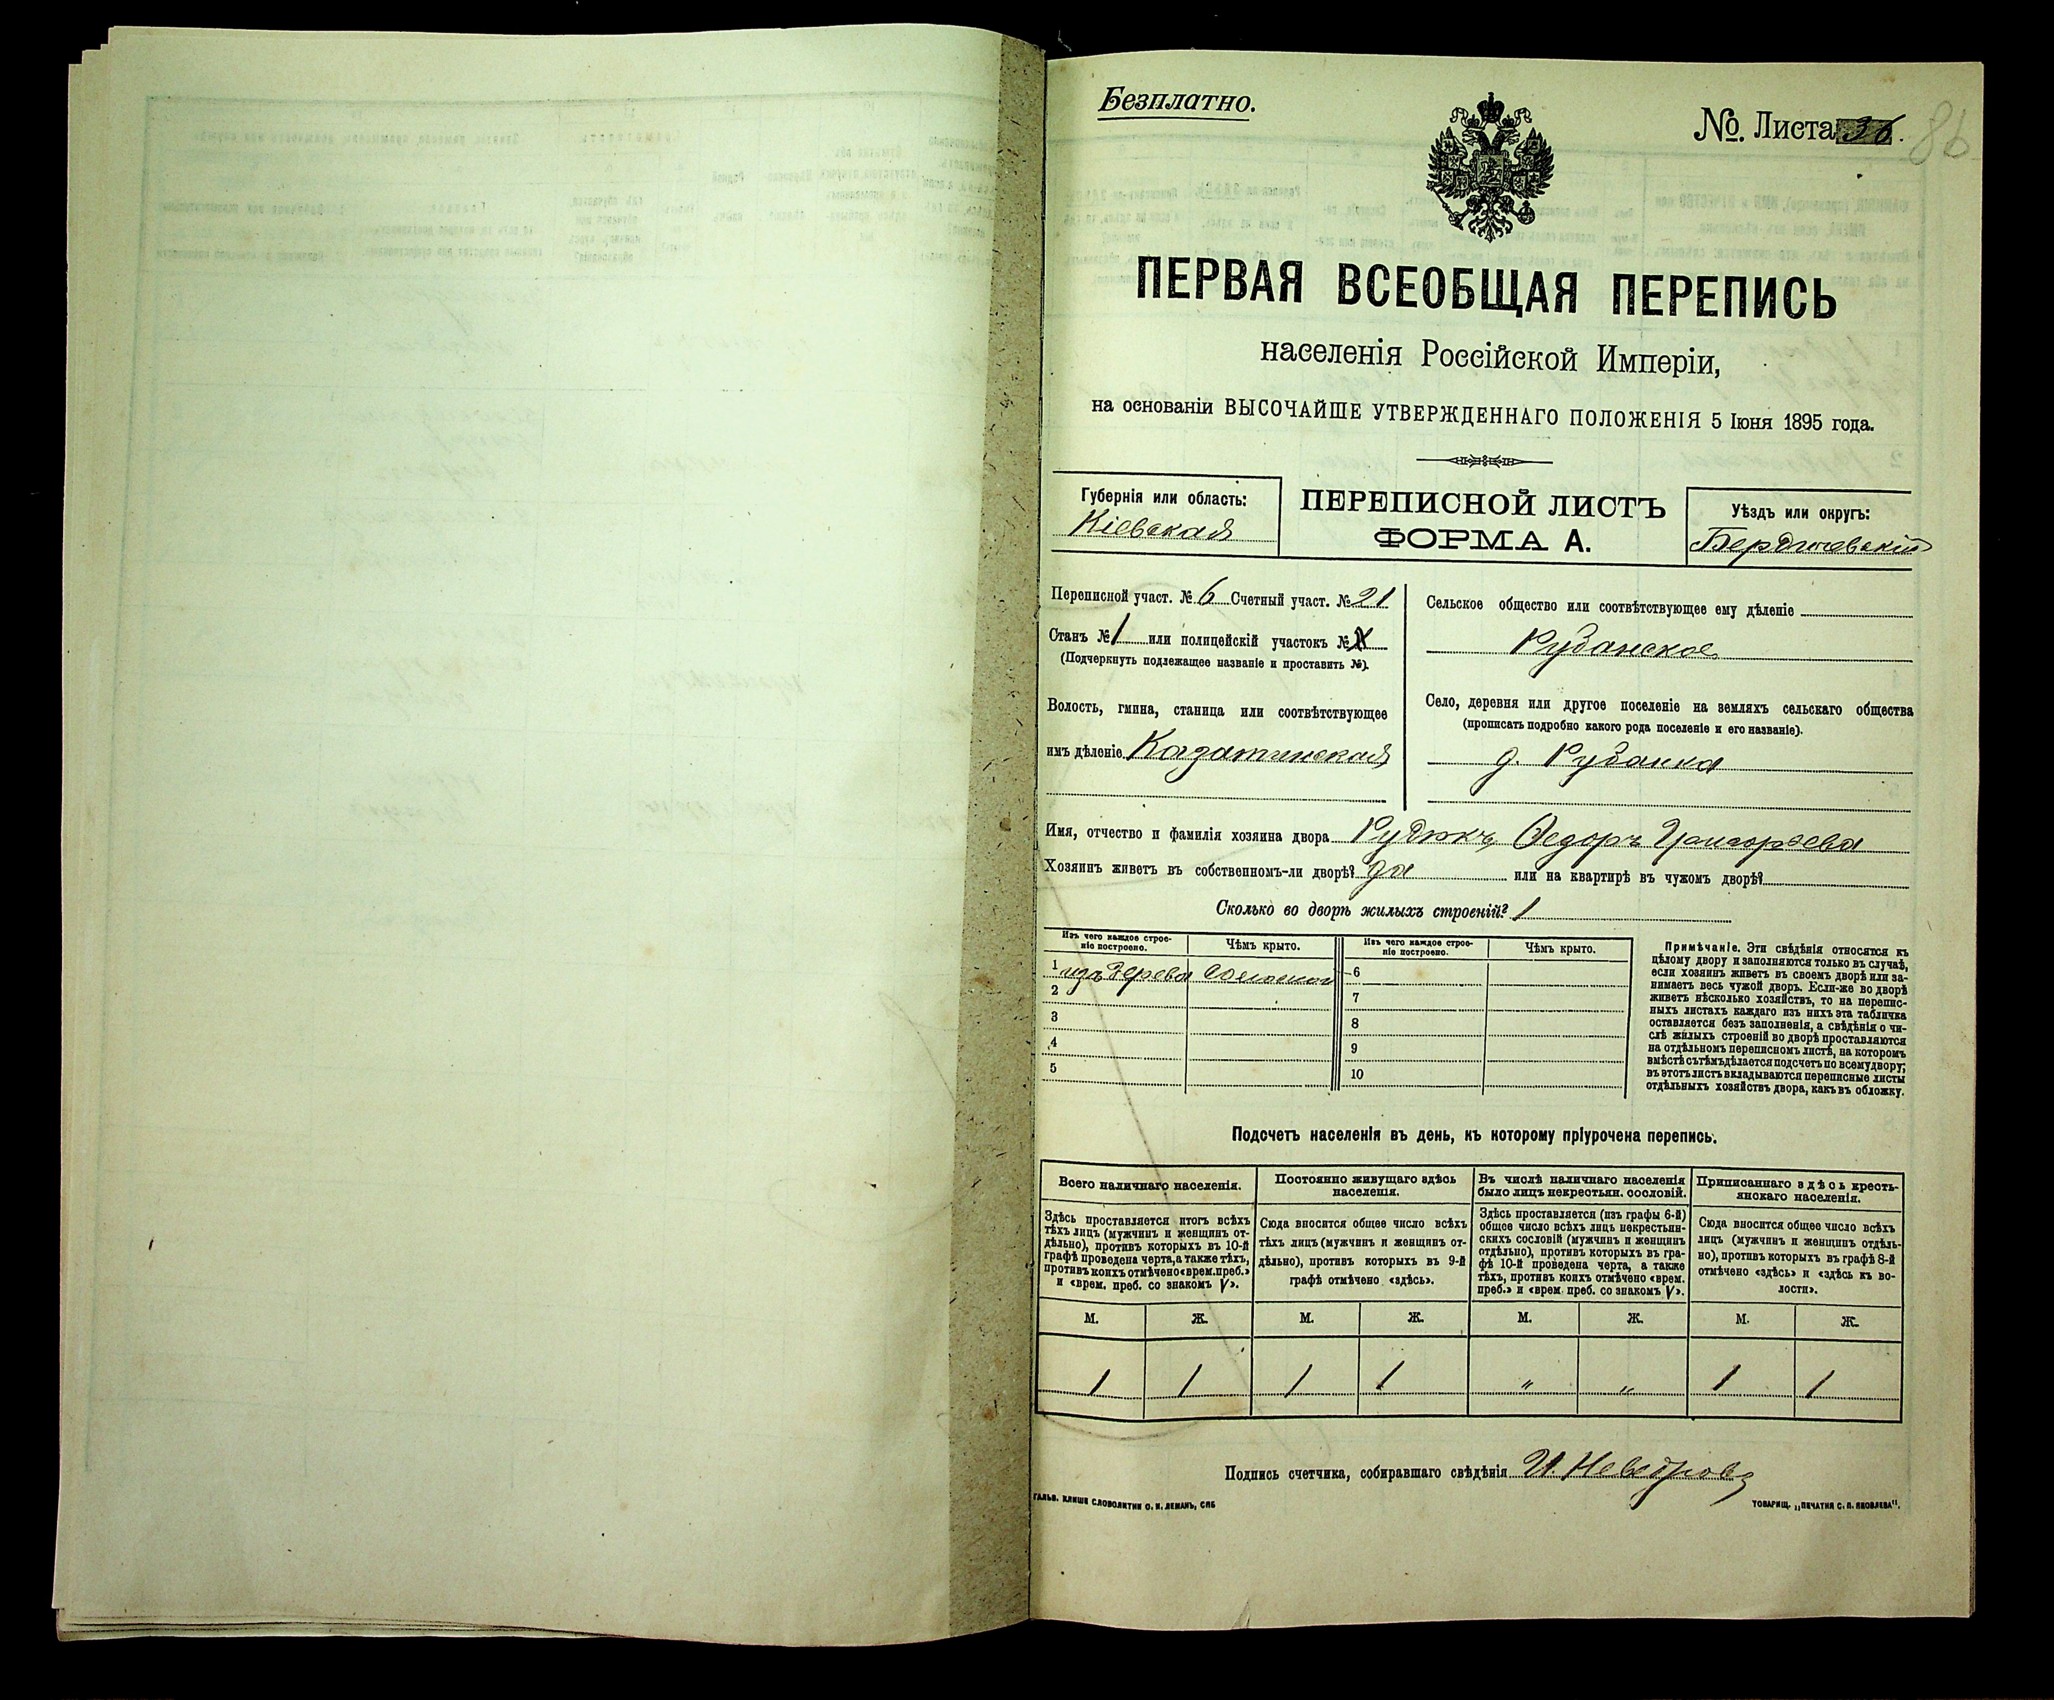 Безплатно.
№. Листа 36.
86
ПЕРВАЯ ВСЕОБЩАЯ ПЕРЕПИСЬ
населенія Россійской Имперіи,
на основаніи ВЫСОЧАЙШЕ УТВЕРЖДЕННАГО ПОЛОЖЕНІЯ 5 Іюня 1895 года.
Губернія или область:
Кіевская
ПЕРЕПИСНОЙ ЛИСТЪ
ФОРМА А.
Уѣздъ или округъ:
Бердичевскій
Переписной участ. № 6 Счетный участ. № 21
Станъ № 1 или полицейскій участокъ №
(Подчеркнуть подлежащее названіе и проставить №).
Волость, гмина, станица или соотвѣтствующее
имъ дѣленіе Казатинская
Сельское общество или соотвѣтствующее ему дѣленіе
Рубанское
Село, деревня или другое поселеніе на земляхъ сельскаго общества
(прописать подробно какого рода поселеніе и его названіе).
д. Рубанка
Имя, отчество и фамилія хозяина двора Федоръ Григорьевъ
Хозяинъ живетъ въ собственномъ-ли дворѣ? да или на квартирѣ въ чужомъ дворѣ?
Сколько во дворѣ жилыхъ строеній? 1
Изъ чего каждое строе-
ніе построено.
Чѣмъ крыто.
Изъ чего каждое строе-
ніе построено.
Чѣмъ крыто.
1 изъ дерева соломой
2
3
4
5
6
7
8
9
10
Примѣчаніе. Эти свѣдѣнія относятся къ
цѣлому двору и заполняются только въ случаѣ,
если хозяинъ живетъ въ своемъ дворѣ или за-
нимаетъ весь чужой дворъ. Если-же во дворѣ
живетъ нѣсколько хозяйствъ, то на перепис-
ныхъ листахъ каждаго изъ нихъ эта табличка
оставляется безъ заполненія, а свѣдѣнія о чи-
слѣ жилыхъ строеній во дворѣ проставляются
на отдѣльномъ переписномъ листѣ, на которомъ
вмѣстѣ съ тѣмъ дѣлается подсчетъ по всему двору;
въ этотъ листъ вкладываются переписные листы
отдѣльныхъ хозяйствъ двора, какъ въ обложку.
Подсчетъ населенія въ день, къ которому пріурочена перепись.
Всего наличнаго населенія.
Здѣсь проставляется итогъ всѣхъ
тѣхъ лицъ (мужчинъ и женщинъ от-
дѣльно), противъ которыхъ въ 10-й
графѣ проведена черта, а также тѣхъ,
противъ коихъ отмѣчено «врем. преб.»
и «врем. преб. со знакомъ V».
Постоянно живущаго здѣсь
населенія.
Сюда вносится общее число всѣхъ
тѣхъ лицъ (мужчинъ и женщинъ от-
дѣльно), противъ которыхъ въ 9-й
графѣ отмѣчено «здѣсь».
Въ числѣ наличнаго населенія
было лицъ некрестьян. сословій.
Здѣсь проставляется (изъ графы 6-й)
общее число всѣхъ лицъ некрестьян-
скихъ сословій (мужчинъ и женщинъ
отдѣльно), противъ которыхъ въ гра-
фѣ 10-й проведена черта, а также
тѣхъ, противъ коихъ отмѣчено «врем.
преб.» и «врем. преб. со знакомъ V».
Приписаннаго здѣсь кресть-
янскаго населенія.
Сюда вносится общее число всѣхъ
лицъ (мужчинъ и женщинъ отдѣль-
но), противъ которыхъ въ графѣ 8-й
отмѣчено «здѣсь» и «здѣсь въ во-
лости».
М. Ж. М. Ж. М. Ж. М. Ж.
1 1 1 1 " " 1 1
Подпись счетчика, собиравшаго свѣдѣнія
ГАЛЬВ. КЛИШЕ СЛОВОЛИТНИ О. И. ЛЕМАНЪ, СПБ
ТОВАРИЩ. „ПЕЧАТНЯ С. П. ЯКОВЛЕВА".